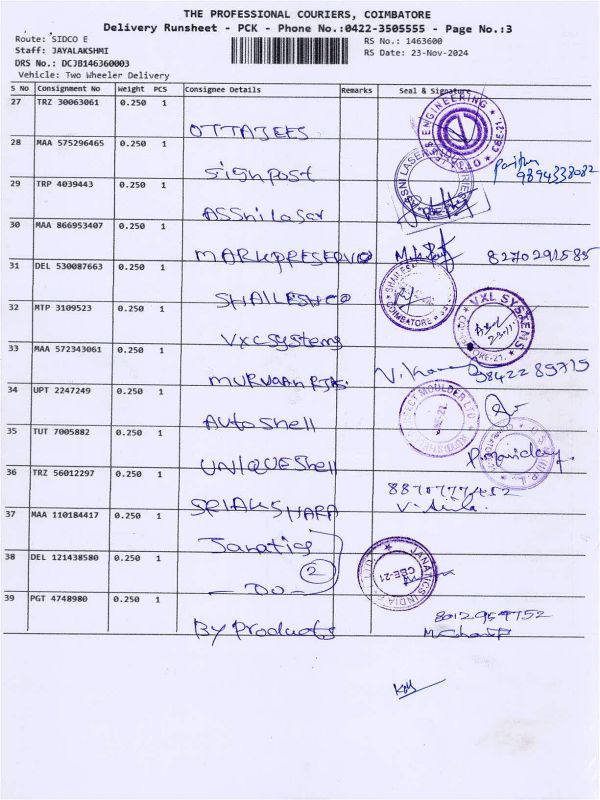 THE PROFESSIONAL COURIERS, COIMBATORE
Delivery Runsheet - PCK - Phone No.:0422-3505555 - Page No.:3
Route: SIDCO E
RS No.: 1463600
Staff: JAYALAKSHMI
RS Date: 23-Nov-2024
DRS No.: DCJB146360003
Vehicle: Two Wheeler Delivery
S No Consignment No Weight PCS Consignee Details Remarks Seal & Signature
27 TRZ 30063061 0.250 1
OTTAJEES
ENGINEERING
CBE-21.
28 MAA 575296465 0.250 1
Signpost
9894338082
29 TRP 4039443 0.250 1
ASSniLaser
30 MAA 866953407 0.250 1
MARKPRESERVO
8270291585
31 DEL 530087663 0.250 1
SHAILESHCO
COIMBATORE
32 MTP 3109523 0.250 1
Vxcsystems
VXL SYSTEMS
33 MAA 572343061 0.250 1
9842289715
34 UPT 2247249 0.250 1
AutoShell
35 TUT 7005882 0.250 1
UNIQUEShell
36 TRZ 56012297 0.250 1
SRIAKSHARA
37 MAA 110184417 0.250 1
Janatics
2
38 DEL 121438580 0.250 1
- Do -
JANATICS INDIA
CBE-21
39 PGT 4748980 0.250 1
By Products